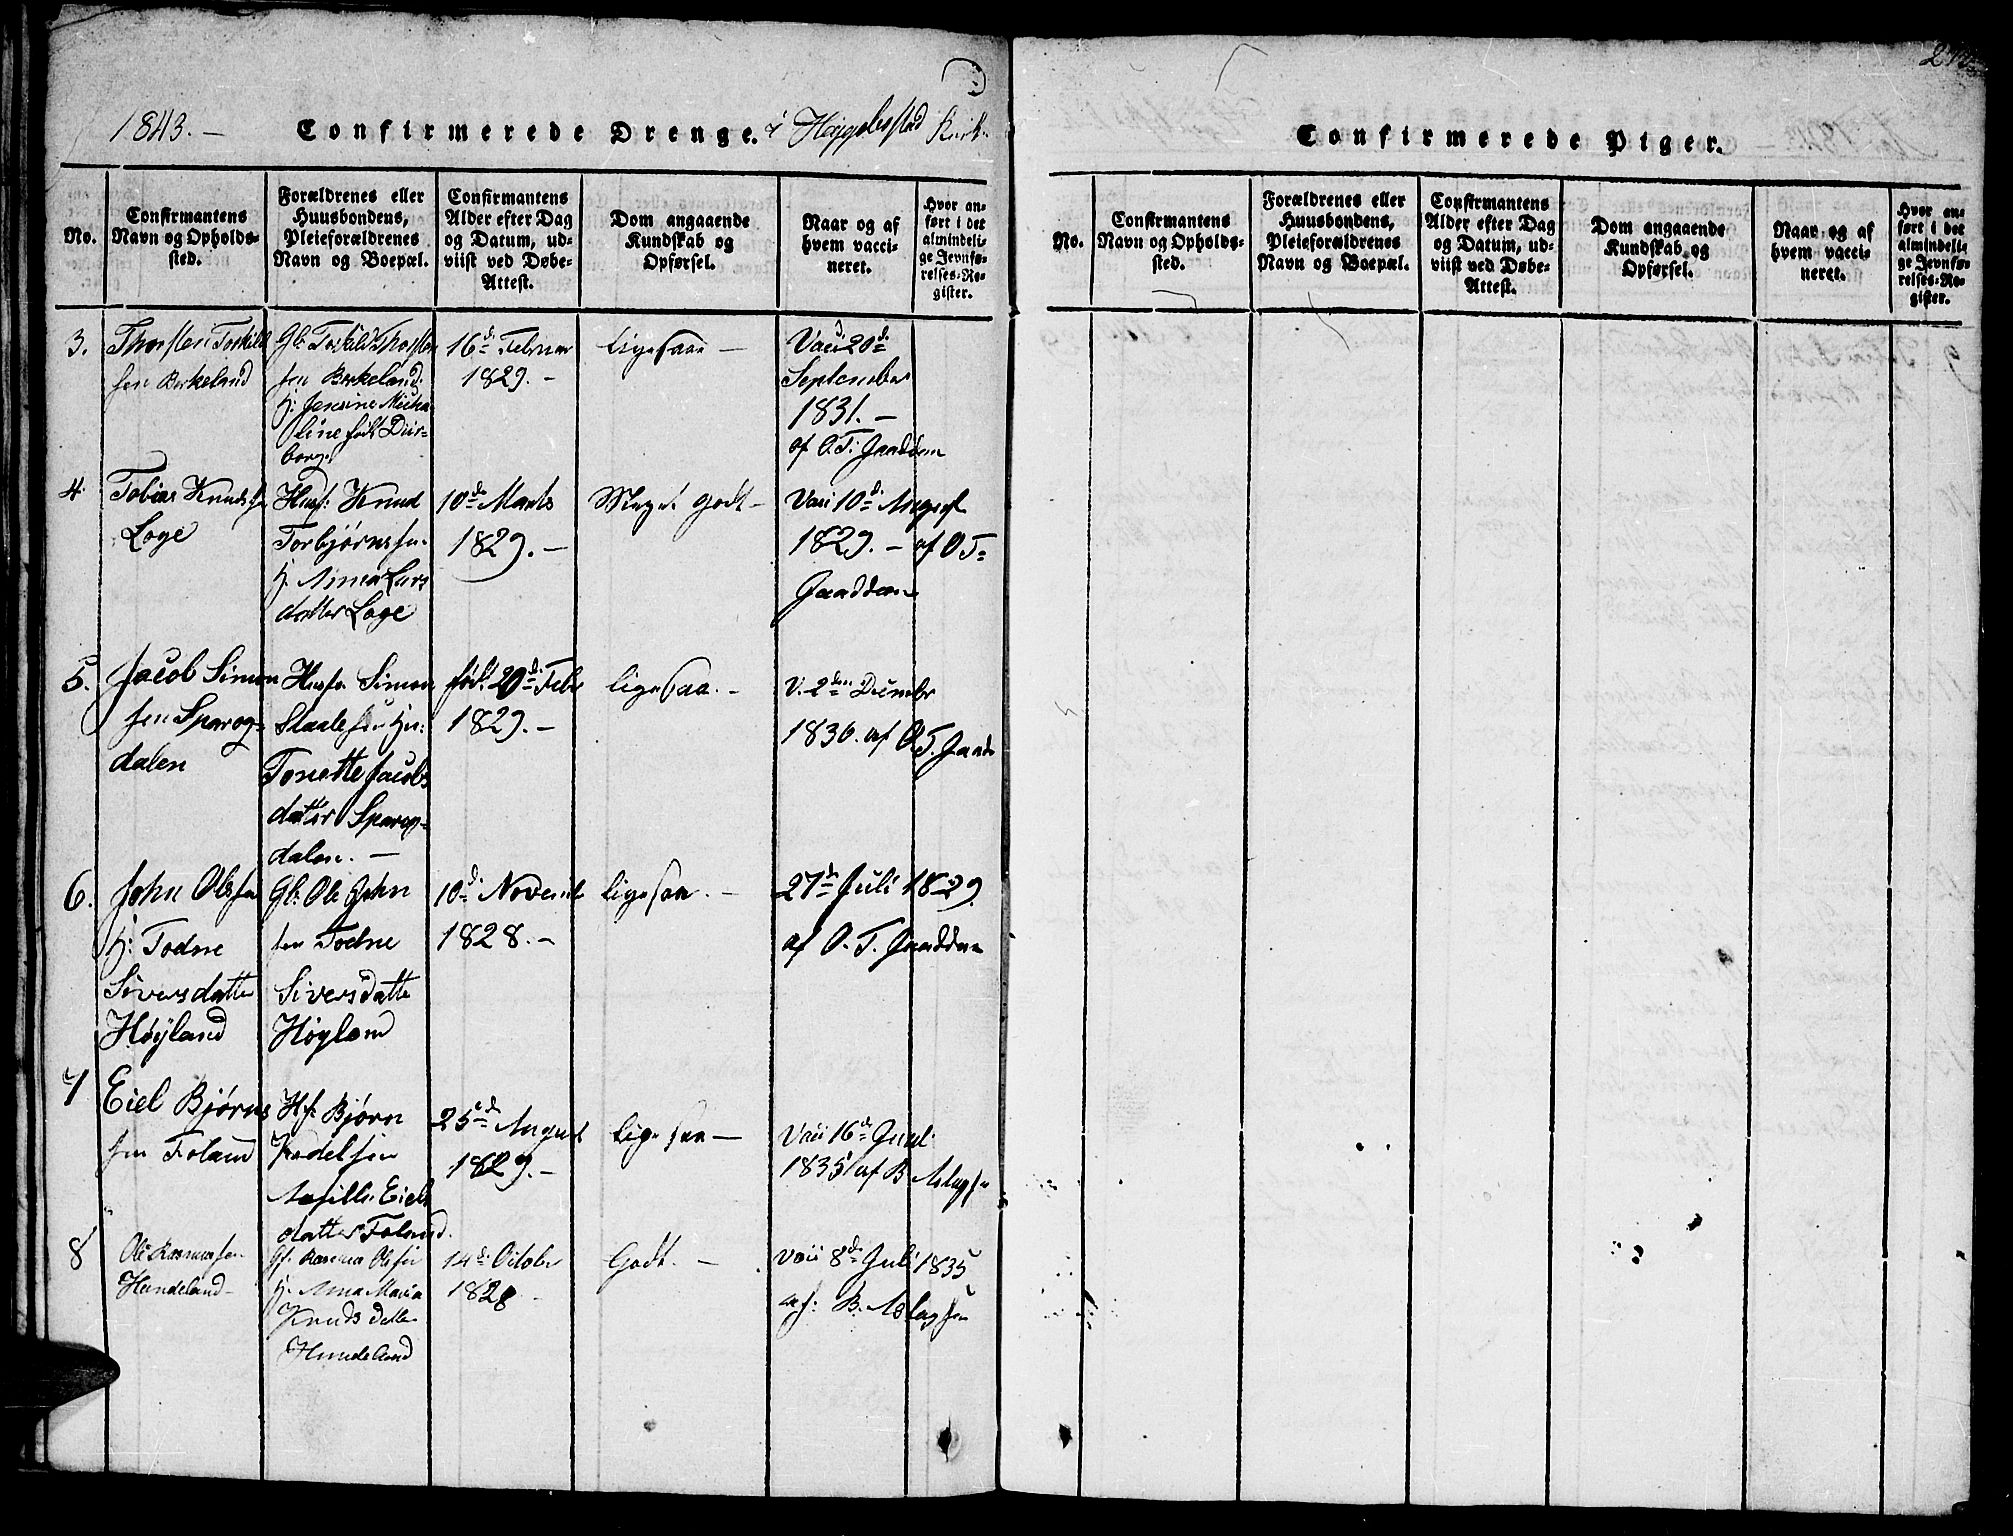 1843. — Confirmerede Drenge. i Hæggebostad Kirk
No.
Confirmantens Navn og Opholds-
sted.
Forældrenes eller
Huusbondens,
Pleieforældrenes
Navn og Boepæl.
Confirmantens
Alder efter Dag
og Datum, ud-
viist ved Døbe-
Attest.
Dom angaaende
Kundskab og
Opførsel.
Naar og af
hvem vacci-
neret.
Hvor an-
ført i det
almindeli-
ge Jevnfø-
relses-Re-
gister.
3.
Thorsten Torkild
sen Birkeland
Torkild Thorsten
sen Birkeland
H: Jensine Micha
line født
16d Februar
1829. —
ligesaa —
Vacc 20d
September
1831. —
af O. T. Gaaddem
4.
Tobias Knuds
Loge
Huusf: Knud
Torbjørnsen
H. Anna Lars
datter Loge
10de Marts
1829. —
Meget godt —
Vacc 10d August
1829. — af O T=
Gaaddem
5.
Jacob Simon
sen Sparog-
dalen
Huusf. Simon
Staalesen
Tonette Jacobs
datter Sparog-
dalen. —
født 20d Febr
1829. —
ligesaa. —
V. 2den Decembr
1836. af O. T. Gaadd
6.
John Olesen
H: Todne
Siversdatter
Høyland
Gb: Ole John
sen Todne
Siversdatte
Høyland
10d Novemb
1828. —
ligesaa. —
27d Juli 1829.
af O. T. Gaaddem
7
Eiel Bjørns
sen Foland
Hf. Bjørn
Eiels
datter Foland.
25d August
1829. —
ligesaa —
Vacc 16d Juni
1835 af B. Aslagsen
8
Ole Rasmussen
Hundeland —
Rasmus Olesen
H. Anna Maria
Knuds datter
Hundeland
14d October
1828 —
Godt. —
Vacc 8de Juli 1835
af: B. Aslagsen
Confirmerede Piger.
No.
Confirmantens
Navn og Opholds-
sted.
Forældrenes eller
Huusbondens,
Pleieforældrenes
Navn og Boepæl.
Confirmantens
Alder efter Dag
og Datum, ud-
viist ved Døbe-
Attest.
Dom angaaende
Kundskab og
Opførsel.
Naar og af
hvem vacci-
neret.
Hvor an-
ført i det
almindeli-
ge Jevnfø-
relses-Re-
gister.